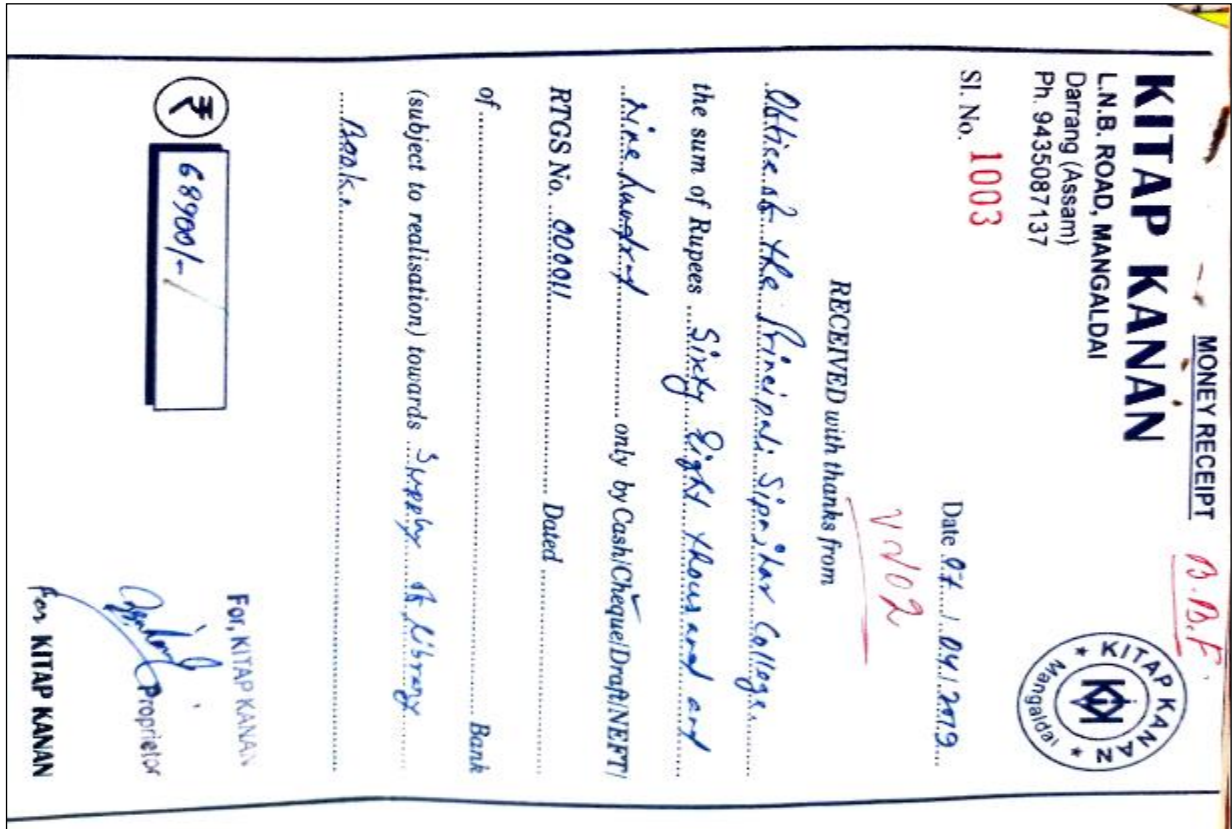 MONEY RECEIPT
B.B.F.
KITAP KANAN
L.N.B. ROAD, MANGALDAI
Darrang (Assam)
Ph. 9435087137
KITAP KANAN
Mangaldai
Sl. No. 1003
Date 07/04/2019
RECEIVED with thanks from
Office of the Principal: Sipajhar College.
the sum of Rupees Sixty Eight thousand and
Nine hundred only by Cash/Cheque/Draft/NEFT/
RTGS No. 000011 Dated
of Bank
(subject to realisation) towards Supply of library
Book.
₹ 68900/-
For, KITAP KANAN
Proprietor
For KITAP KANAN